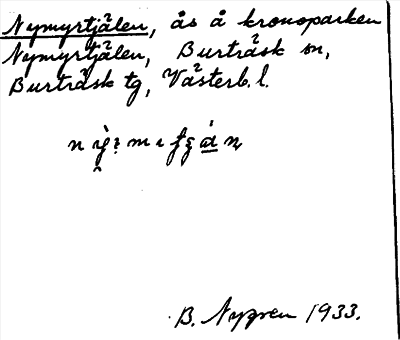 Nymyrtjålen, ås å kronoparken
Nymyrtjålen, Burträsk sn,
Burträsk tg, Västerb. l.
B. Nygren 1933.